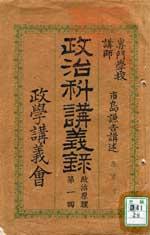 專門學校
講師
市島謙吉講述
政治科講義錄
政治原理
第一囘
政學講義會